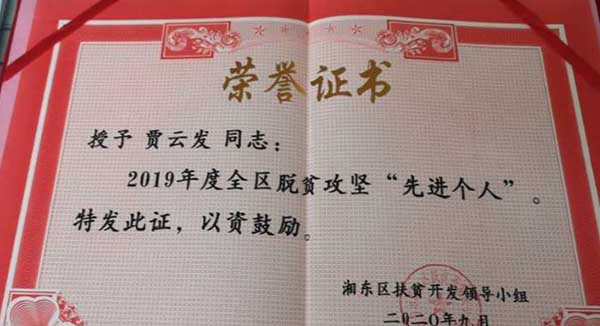 荣誉证书
授予 贾云发 同志：
2019年度全区脱贫攻坚“先进个人”。
特发此证，以资鼓励。
湘东区扶贫开发领导小组
二〇二〇年九月